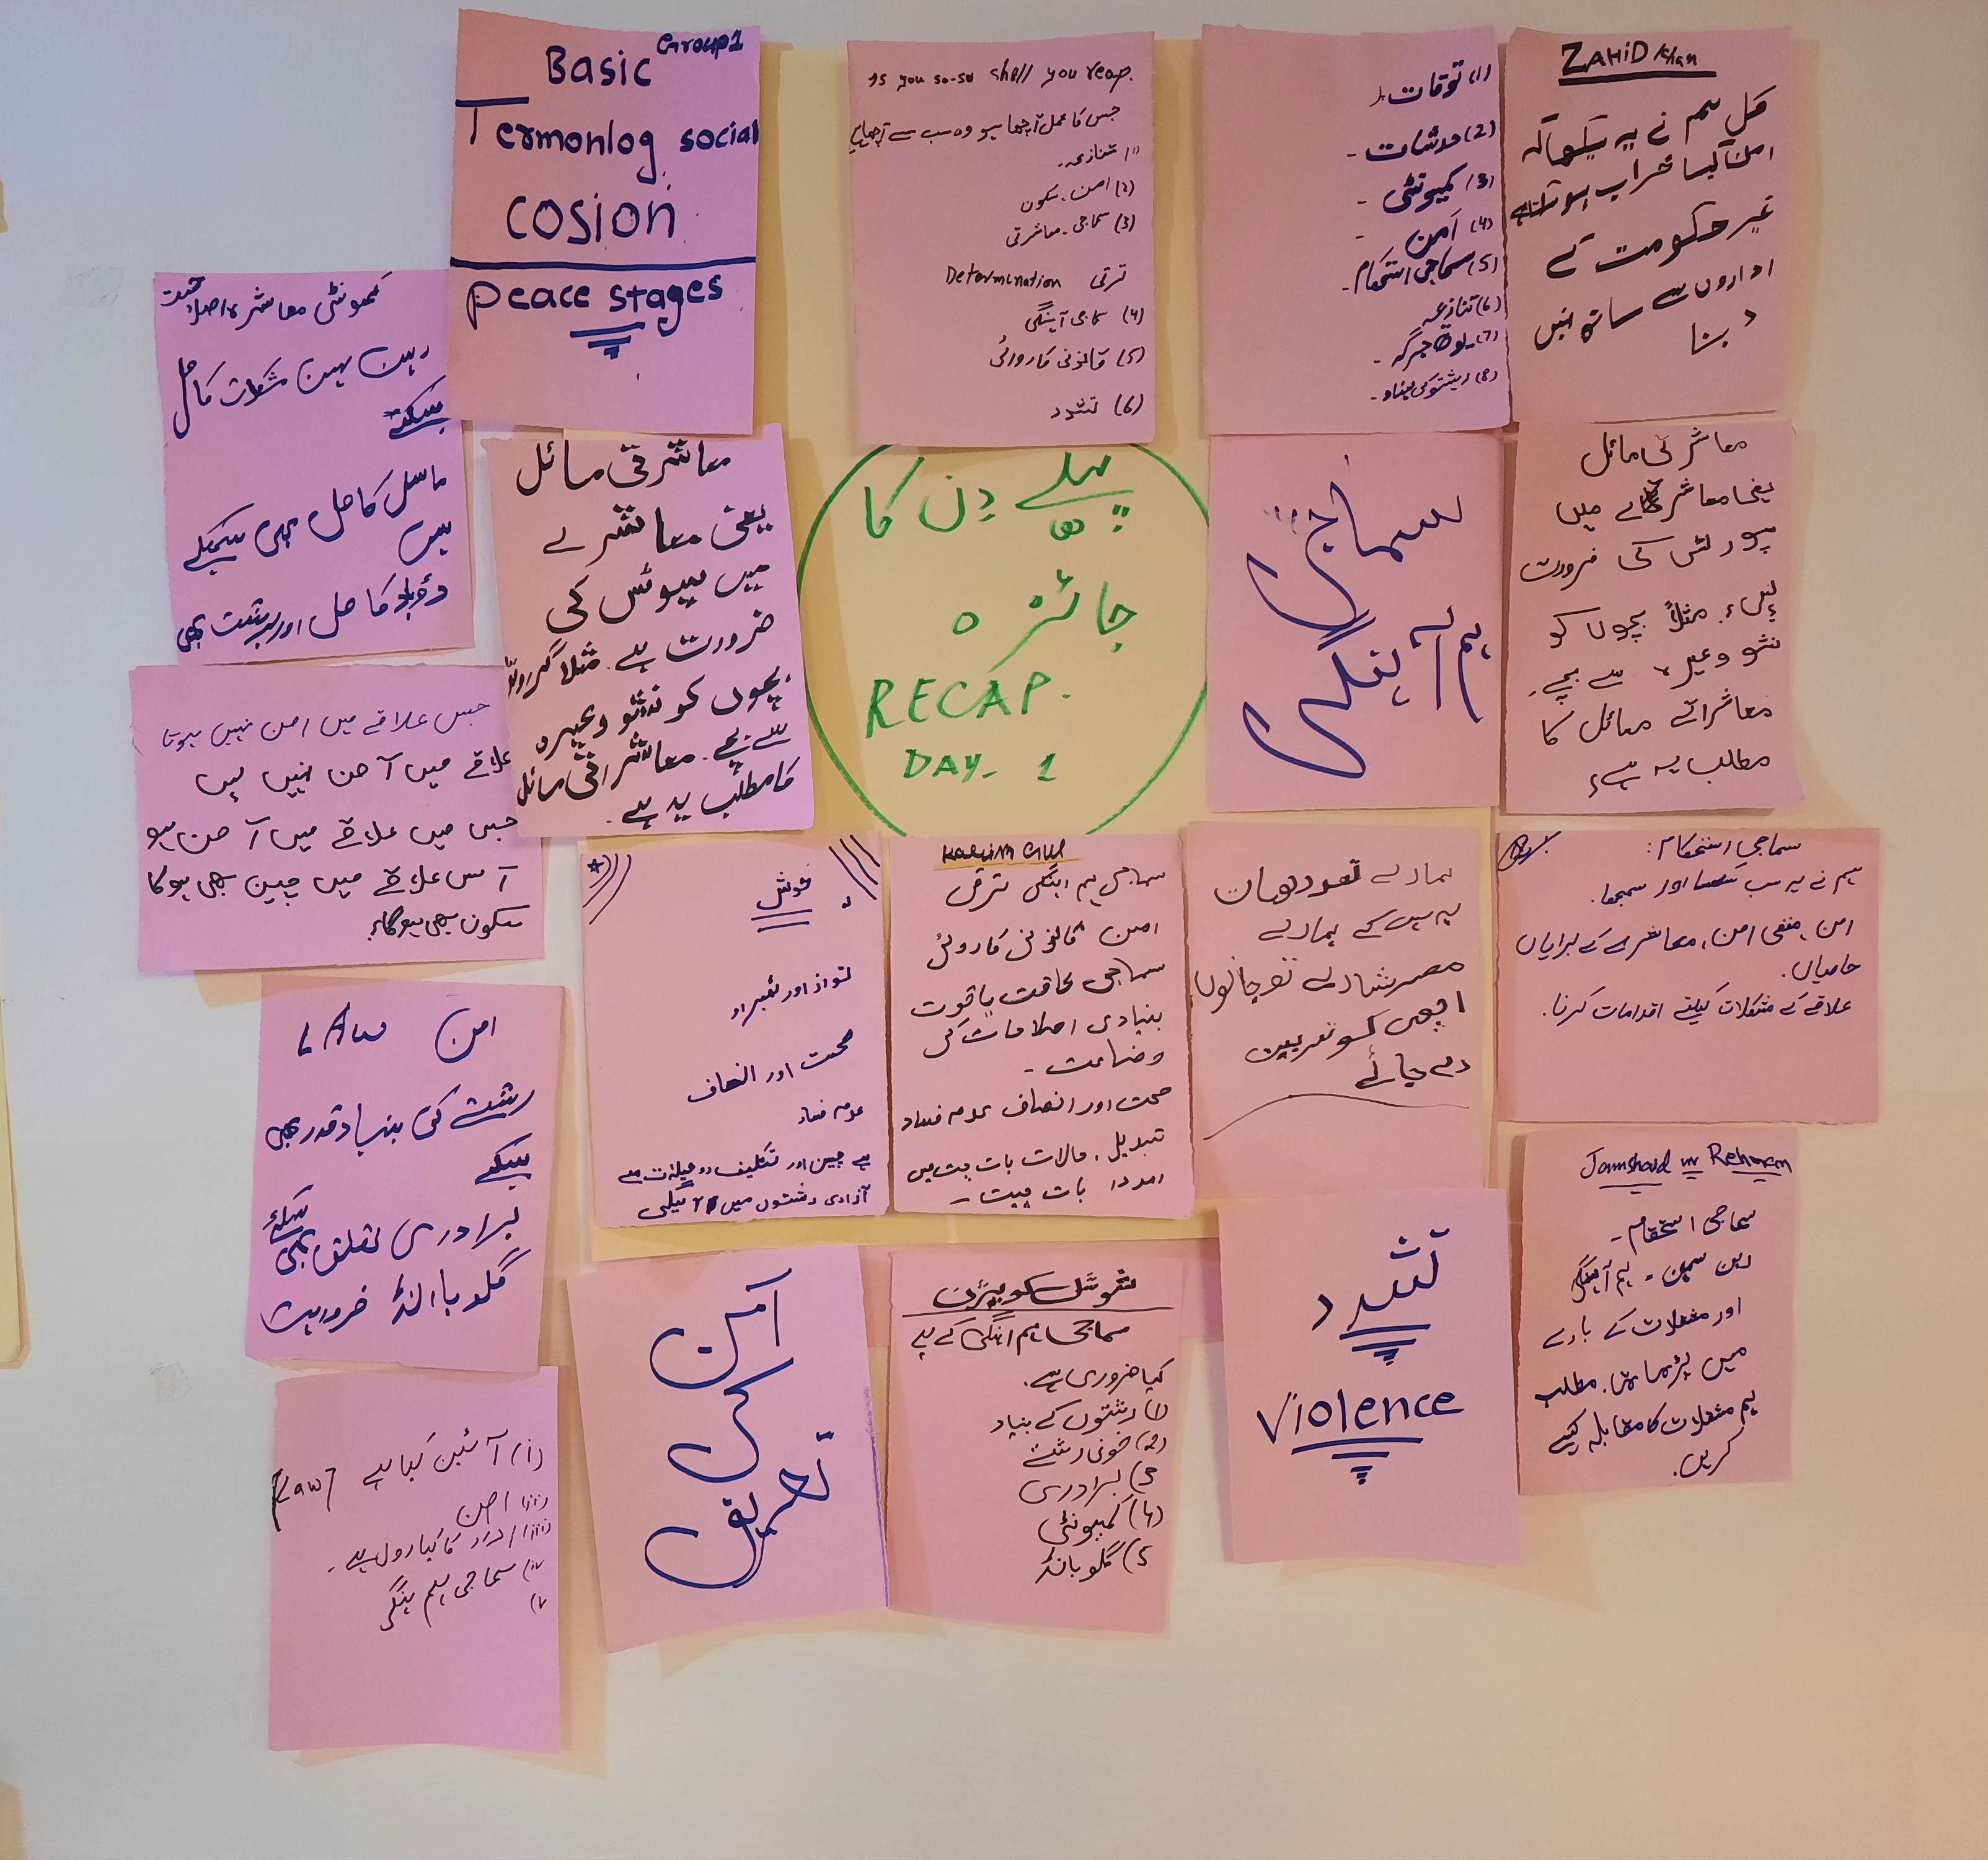 Group1
Basic
Termonlog social
COSION
peace stages
As you so-so shall you reap.
جس کا عمل اچھا ہو وہ سب سے اچھا ہے
(1) تنازعہ۔
(2) امن۔ سکون
(3) سماجی۔ معاشرتی
ترقی Determination
(4) سماجی آہنگی
(5) قانونی کاروائی
(6) تشدد
(1) توقات
(2) خدشات -
(3) کمیونٹی -
(4) اَمن -
(5) سماجی استحکام -
(6) تنازعہ
(7) جرگہ -
(8) بنیاد -
ZAHID Khan
کل ہم نے یہ سیکھا کہ
امن کیسا خراب ہوتا ہے
غیر حکومت کے
اداروں سے ساتھ نہیں
دینا
کمونٹی معاشرہ
رہن سہن مشکلات کا حل
سیکھے
مسائل کا حل بھی سیکھے
ہیں
کا حل اور بھی
معاشرتی مسائل
یعنی معاشرے
میں سپوٹس کی
ضرورت ہے۔ مثلاً
بچوں کو نشو وغیرہ
سے بچے۔ معاشراتی مسائل
کا مطلب یہ ہے۔
پہلے دن کا
جائزہ
RECAP.
DAY- 1
سماجی
ہم آہنگی
معاشرتی مسائل
یعنی معاشرے میں
سپورٹس کی ضرورت
ہیں۔ مثلاً بچوں کو
نشو وغیرہ سے بچے۔
معاشراتے مسائل کا
مطلب یہ ہے۔
جس علاقے میں امن نہیں ہوتا
علاقے میں آمن نہیں ہیں
جس میں علاقے میں آمن ہو
آس علاقے میں چین بھی ہوگا
سکون بھی ہوگا۔
شوش
توازن اور ٹھہراو
صحت اور انصاف
عدمہ فساد
بے چین اور تکلیف سے
آزادی رشتوں میں
Karim Gul
سماجی ہم اہنگی ترقی
امن قانونی کاروائی
سماجی طاقت یا قوت
بنیادی اصلاحات کی
وضاحت -
صحت اور انصاف عدمہ فساد
تبدیل، حالات بات چیت میں
امدد بات چیت -
ہمارے
یہ ہیں کے ہمارے
نوجانوں
اچھی
دے جائے
سماجی استحکام:
ہم نے یہ سب سیکھا اور سمجھا۔
امن، منفی امن، معاشرے کے برایاں
خامیاں۔
علاقے کے مشکلات کیلئے اقدامات کرنا۔
امن LAW
رشتے کی بنیاد قدر بھی
سیکھے
برادری تعلق بھی سیکھے
گلوبالائز ضروریت
آمن
کی
تعریف
شوشل کوہیژن
سماجی ہم اہنگی کے لیے
کیا ضروری ہے۔
(1) رشتوں کے بنیاد
(2) خونی رشتے
(3) برادری
(4) کمیونٹی
(5) گلوبائز
تشدد
Violence
Jamshaid ur Rehman
سماجی استحقام -
رہن سہن - ہم آہنگی
اور مشکلات کے بارے
میں پڑھا تھا۔ مطلب
ہم مشکلات کا مقابلہ کیسے
کریں۔
(i) آئین کیا ہے [Law]
(ii) امن
(iii) کا کیا رول ہے -
(iv) سماجی ہم ہنگی
(v